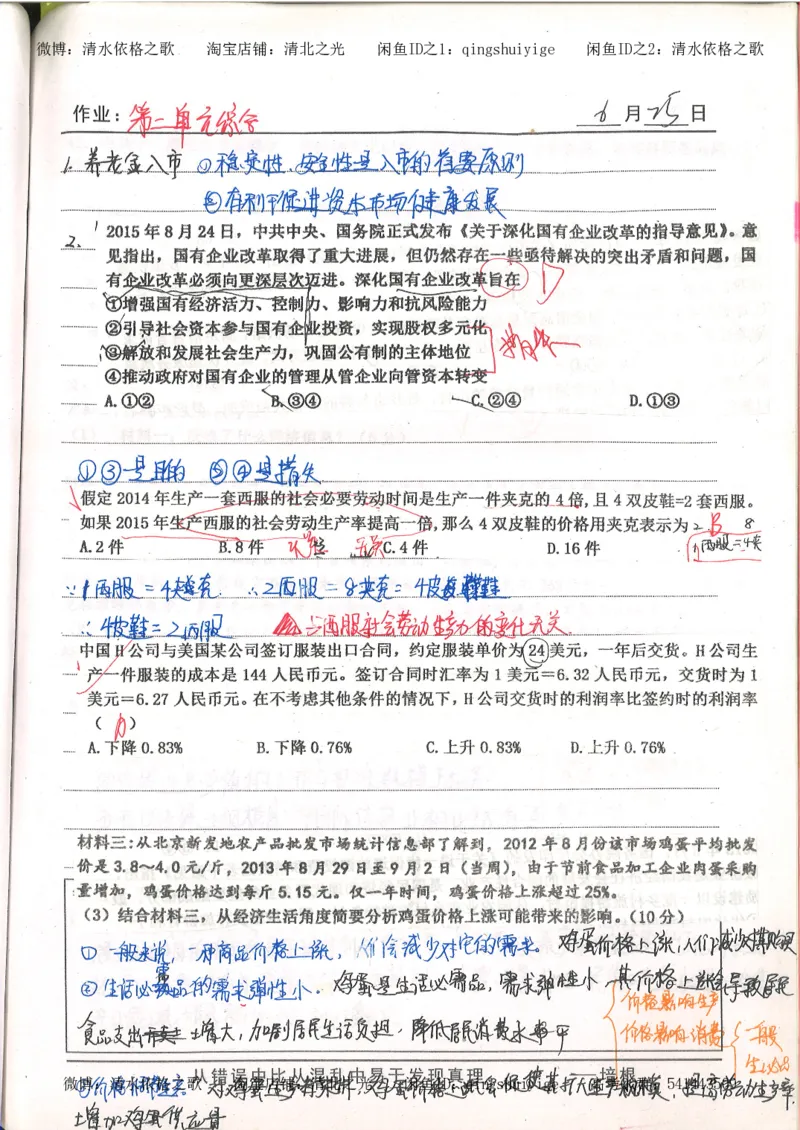 微博：清水依格之歌 淘宝店铺：清北之光 闲鱼ID之1：qingshuiyige 闲鱼ID之2：清水依格之歌
作业：第二单元综合 6月25日
1. 养老金入市 ①稳定性、安全性是入市的首要原则
②有利于促进资本市场健康发展
2. 2015年8月24日，中共中央、国务院正式发布《关于深化国有企业改革的指导意见》。意
见指出，国有企业改革取得了重大进展，但仍然存在一些亟待解决的突出矛盾和问题，国
有企业改革必须向更深层次迈进。深化国有企业改革旨在 D
①增强国有经济活力、控制力、影响力和抗风险能力
②引导社会资本参与国有企业投资，实现股权多元化
③解放和发展社会生产力，巩固公有制的主体地位
④推动政府对国有企业的管理从管企业向管资本转变
A.①② B.③④ C.②④ D.①③
①③是目的 ②④是措失
假定2014年生产一套西服的社会必要劳动时间是生产一件夹克的4倍，且4双皮鞋=2套西服。
如果2015年生产西服的社会劳动生产率提高一倍，那么4双皮鞋的价格用夹克表示为 B 8
A.2件 B.8件 C.4件 D.16件
1西服=4夹
∵1西服=4夹克 ∴2西服=8夹克=4皮鞋
∴4皮鞋=2西服 与西服社会劳动生产力的变化无关
中国H公司与美国某公司签订服装出口合同，约定服装单价为24美元，一年后交货。H公司生
产一件服装的成本是144人民币元。签订合同时汇率为1美元＝6.32人民币元，交货时为1
美元＝6.27人民币元。在不考虑其他条件的情况下，H公司交货时的利润率比签约时的利润率
（ ）
A.下降0.83% B.下降0.76% C.上升0.83% D.上升0.76%
材料三：从北京新发地农产品批发市场统计信息部了解到，2012年8月份该市场鸡蛋平均批发
价是3.8～4.0元/斤，2013年8月29日至9月2日（当周），由于节前食品加工企业肉蛋采购
量增加，鸡蛋价格达到每斤5.15元。仅一年时间，鸡蛋价格上涨超过25%。
（3）结合材料三，从经济生活角度简要分析鸡蛋价格上涨可能带来的影响。（10分）
①一般来说，一种商品价格上涨，人们会减少对它的需求。鸡蛋价格上涨，人们减少其购买
②生活必需品的需求弹性小。鸡蛋是生活必需品，需求弹性小，其价格上涨会导致居民
价格影响生产
食品支出增大，加剧居民生活负担，降低居民消费水平
价格影响消费 一般
生必品
从错误中比从混乱中易于发现真理 ——培根
微博：清水依格之歌
增加鸡蛋供应量